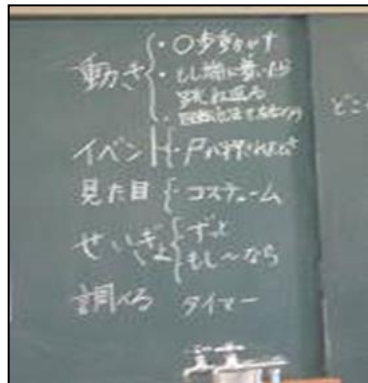 動き
・○歩動かす
・もし端に着いたら
跳ね返る
・回転方法を
イベント ・戸が押されたとき
見た目 ・コスチューム
せいぎょ ずっと
もし～なら
調べる タイマー
どこ